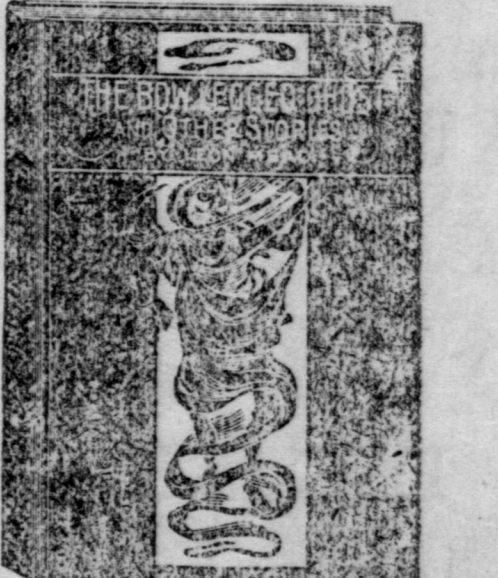 THE BOW-LEGGED GHOST
AND OTHER STORIES